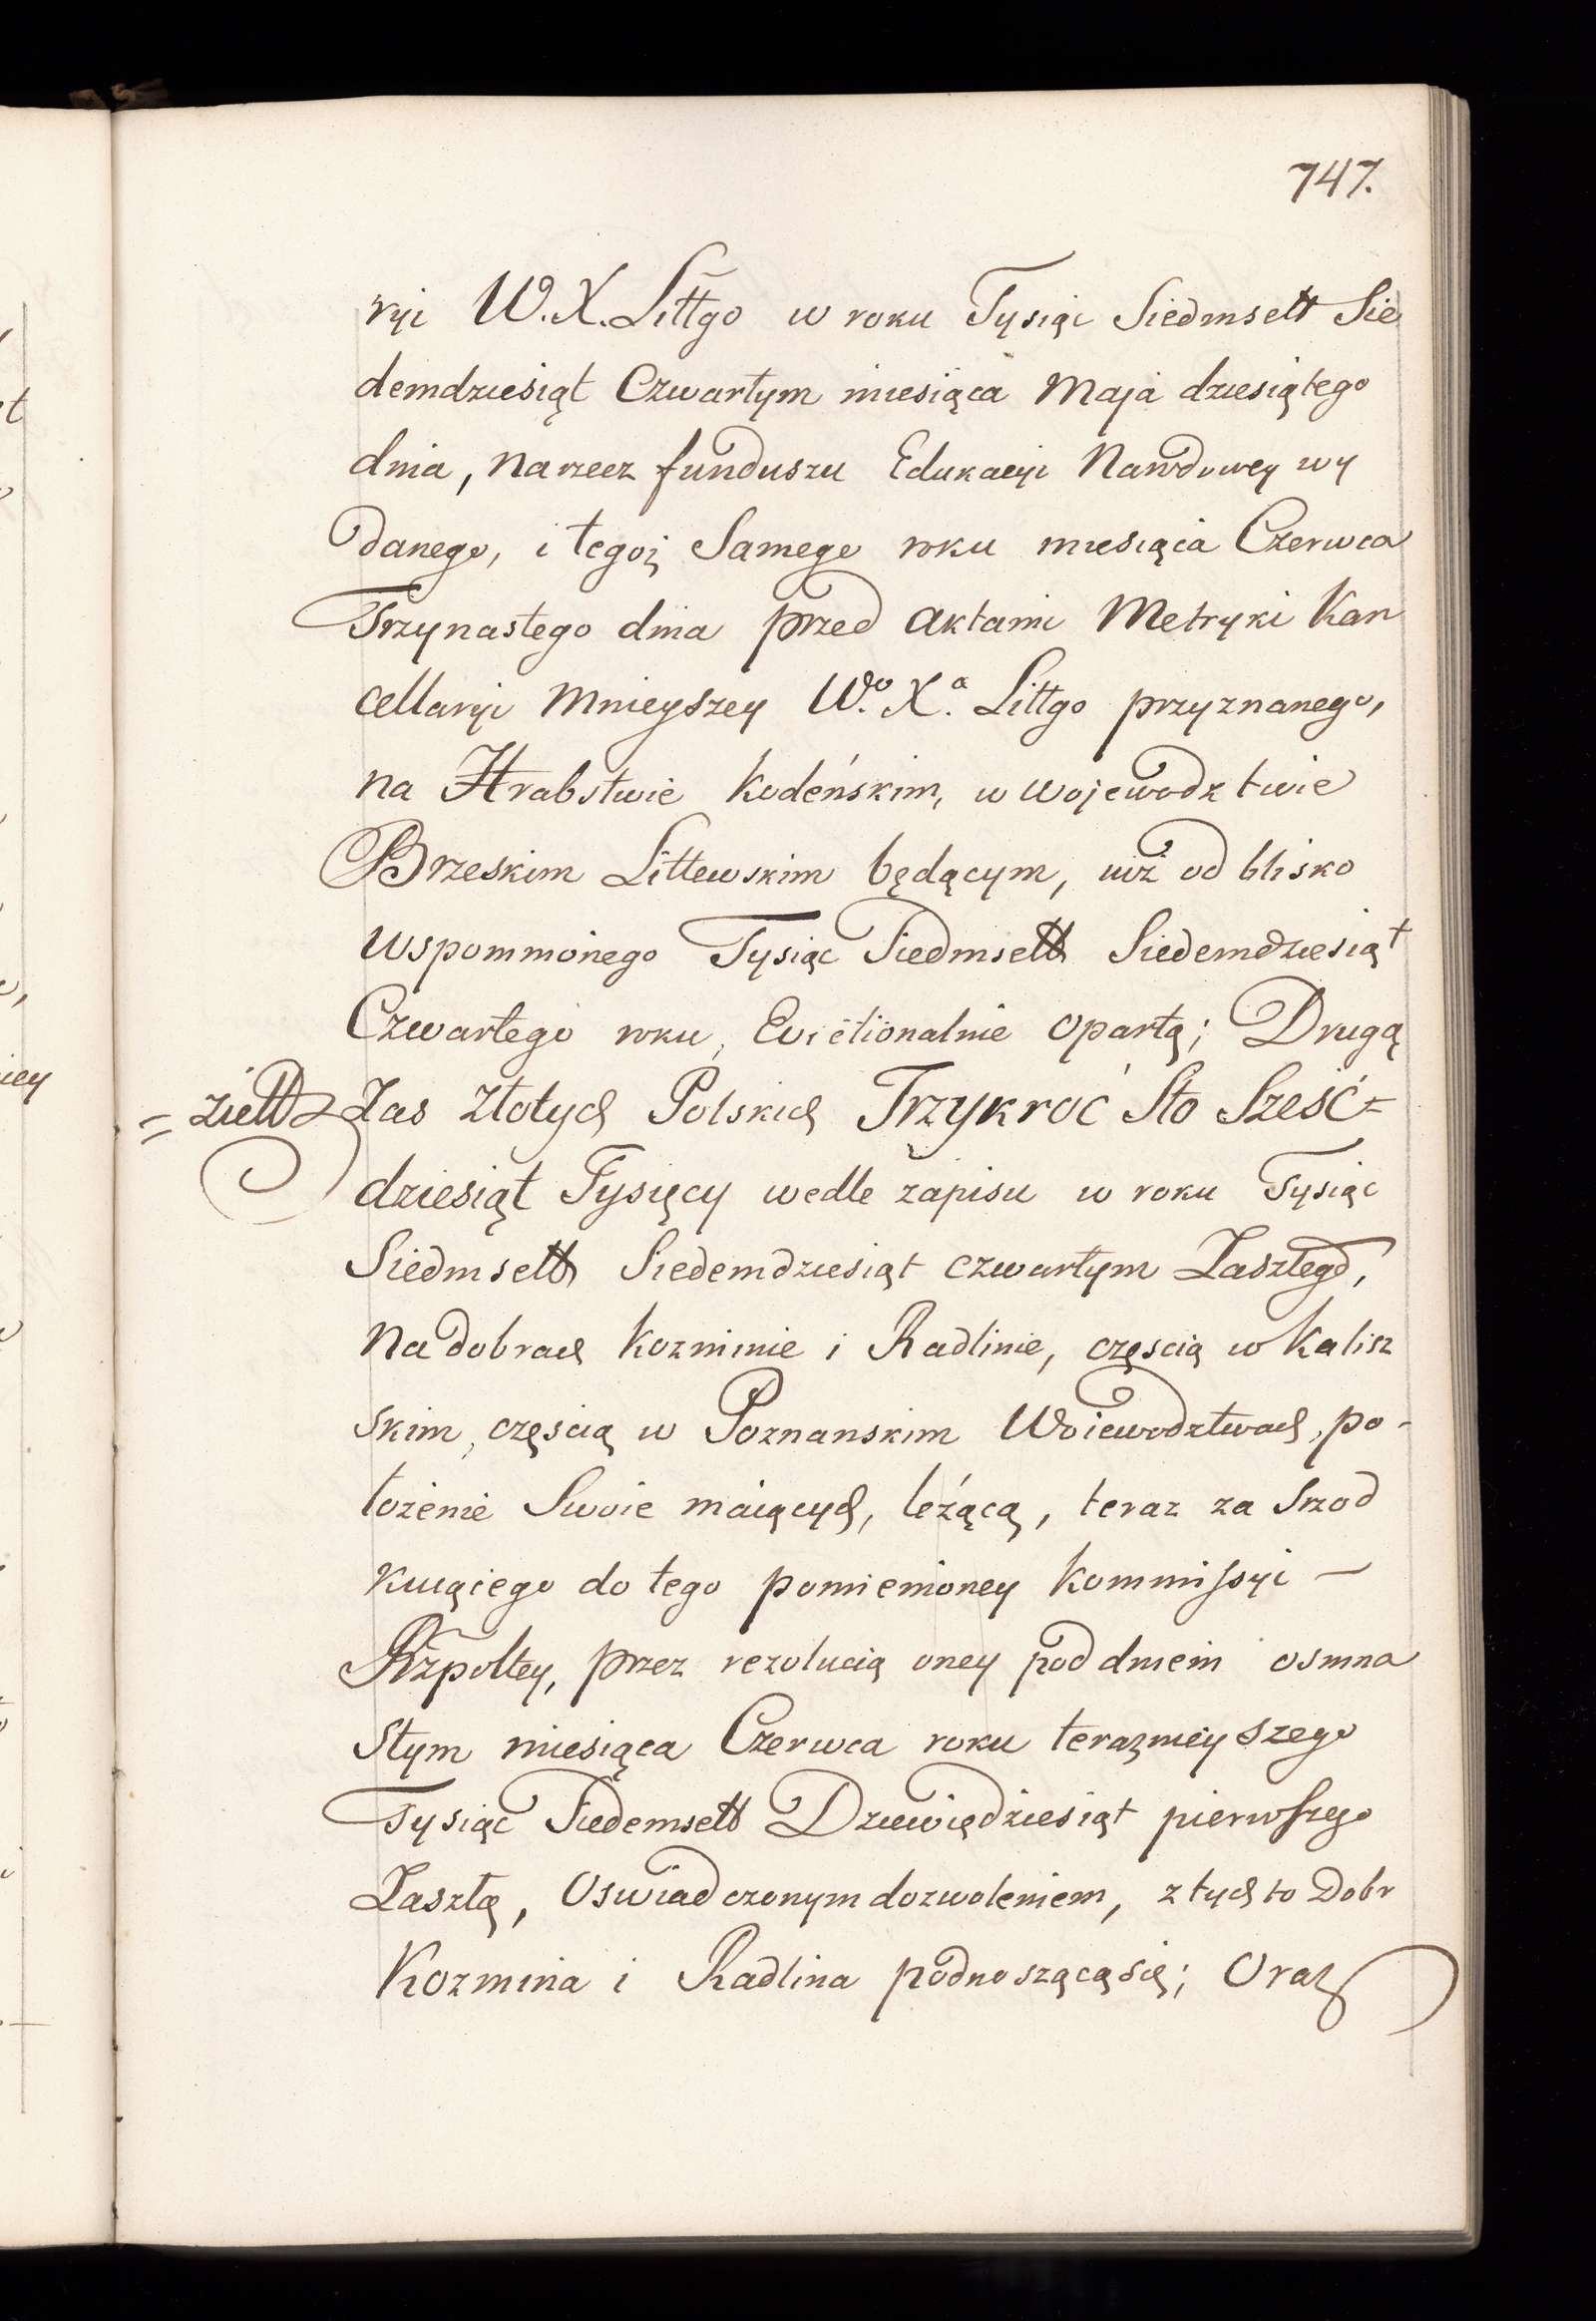 747.
ryi W. X. Littgo w roku Tysiąc Siedmsett Sie
demdziesiąt Czwartym miesiąca Maja dziesiątego
dnia, na rzecz funduszu Edukacyi Narodowey wy
danego, i tegoż Samego roku miesiąca Czerwca
Trzynastego dnia przed aktami Metryki Kan
cellaryi Mnieyszey W.º X.ª Littgo przyznanego,
na Hrabstwie Kodeńskim, w Wojewodztwie
Brzeskim Littewskim będącym, iuż od blisko
wspomnionego Tysiąc Siedmsett Siedemdziesiąt
Czwartego roku, Evictionalnie opartą; Drugą
Zas Złotych Polskich Trzykroć Sto Sześć=
dziesiąt Tysięcy wedle zapisu w roku Tysiąc
Siedmsett Siedemdziesiąt czwartym Zaszłego,
na dobrach Kozminie i Radlinie, częscią w Kalisz
skim, częscią w Poznanskim Woiewodztwach, po-
łożenie Swoie maiących, leżącą, teraz za Srzod
kuiącego do tego pomienioney Kommissyi —
Rzpoltey, przez rezolucią oney pod dniem osmna
Stym miesiąca Czerwca roku teraznieyszego
Tysiąc Siedemsett Dziewiędziesiąt pierwszego
Zaszłą, Oswiadczonym dozwoleniem, z tych to Dobr
Kozmina i Radlina podnoszącą się; Oraz